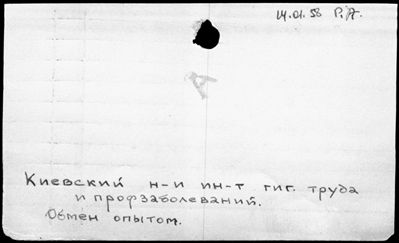 14.01.58 Р.Л.
Киевский н-и ин-т гиг. труда
и профзаболеваний.
Обмен опытом.